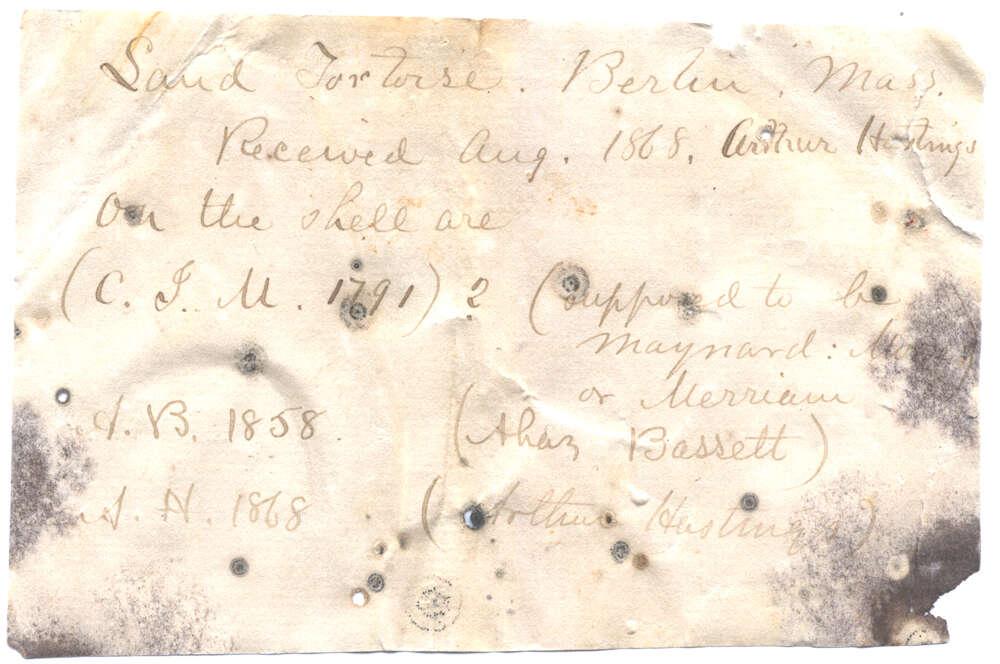 Land Tortoise. Berlin, Mass.
Received Aug. 1868. Arthur Hastings
On the shell are
(C. I. M. 1791) 2 (supposed to be
Maynard:
or Merriam
A. B. 1858 (Ahaz Bassett)
A. H. 1868 (Arthur Hastings)